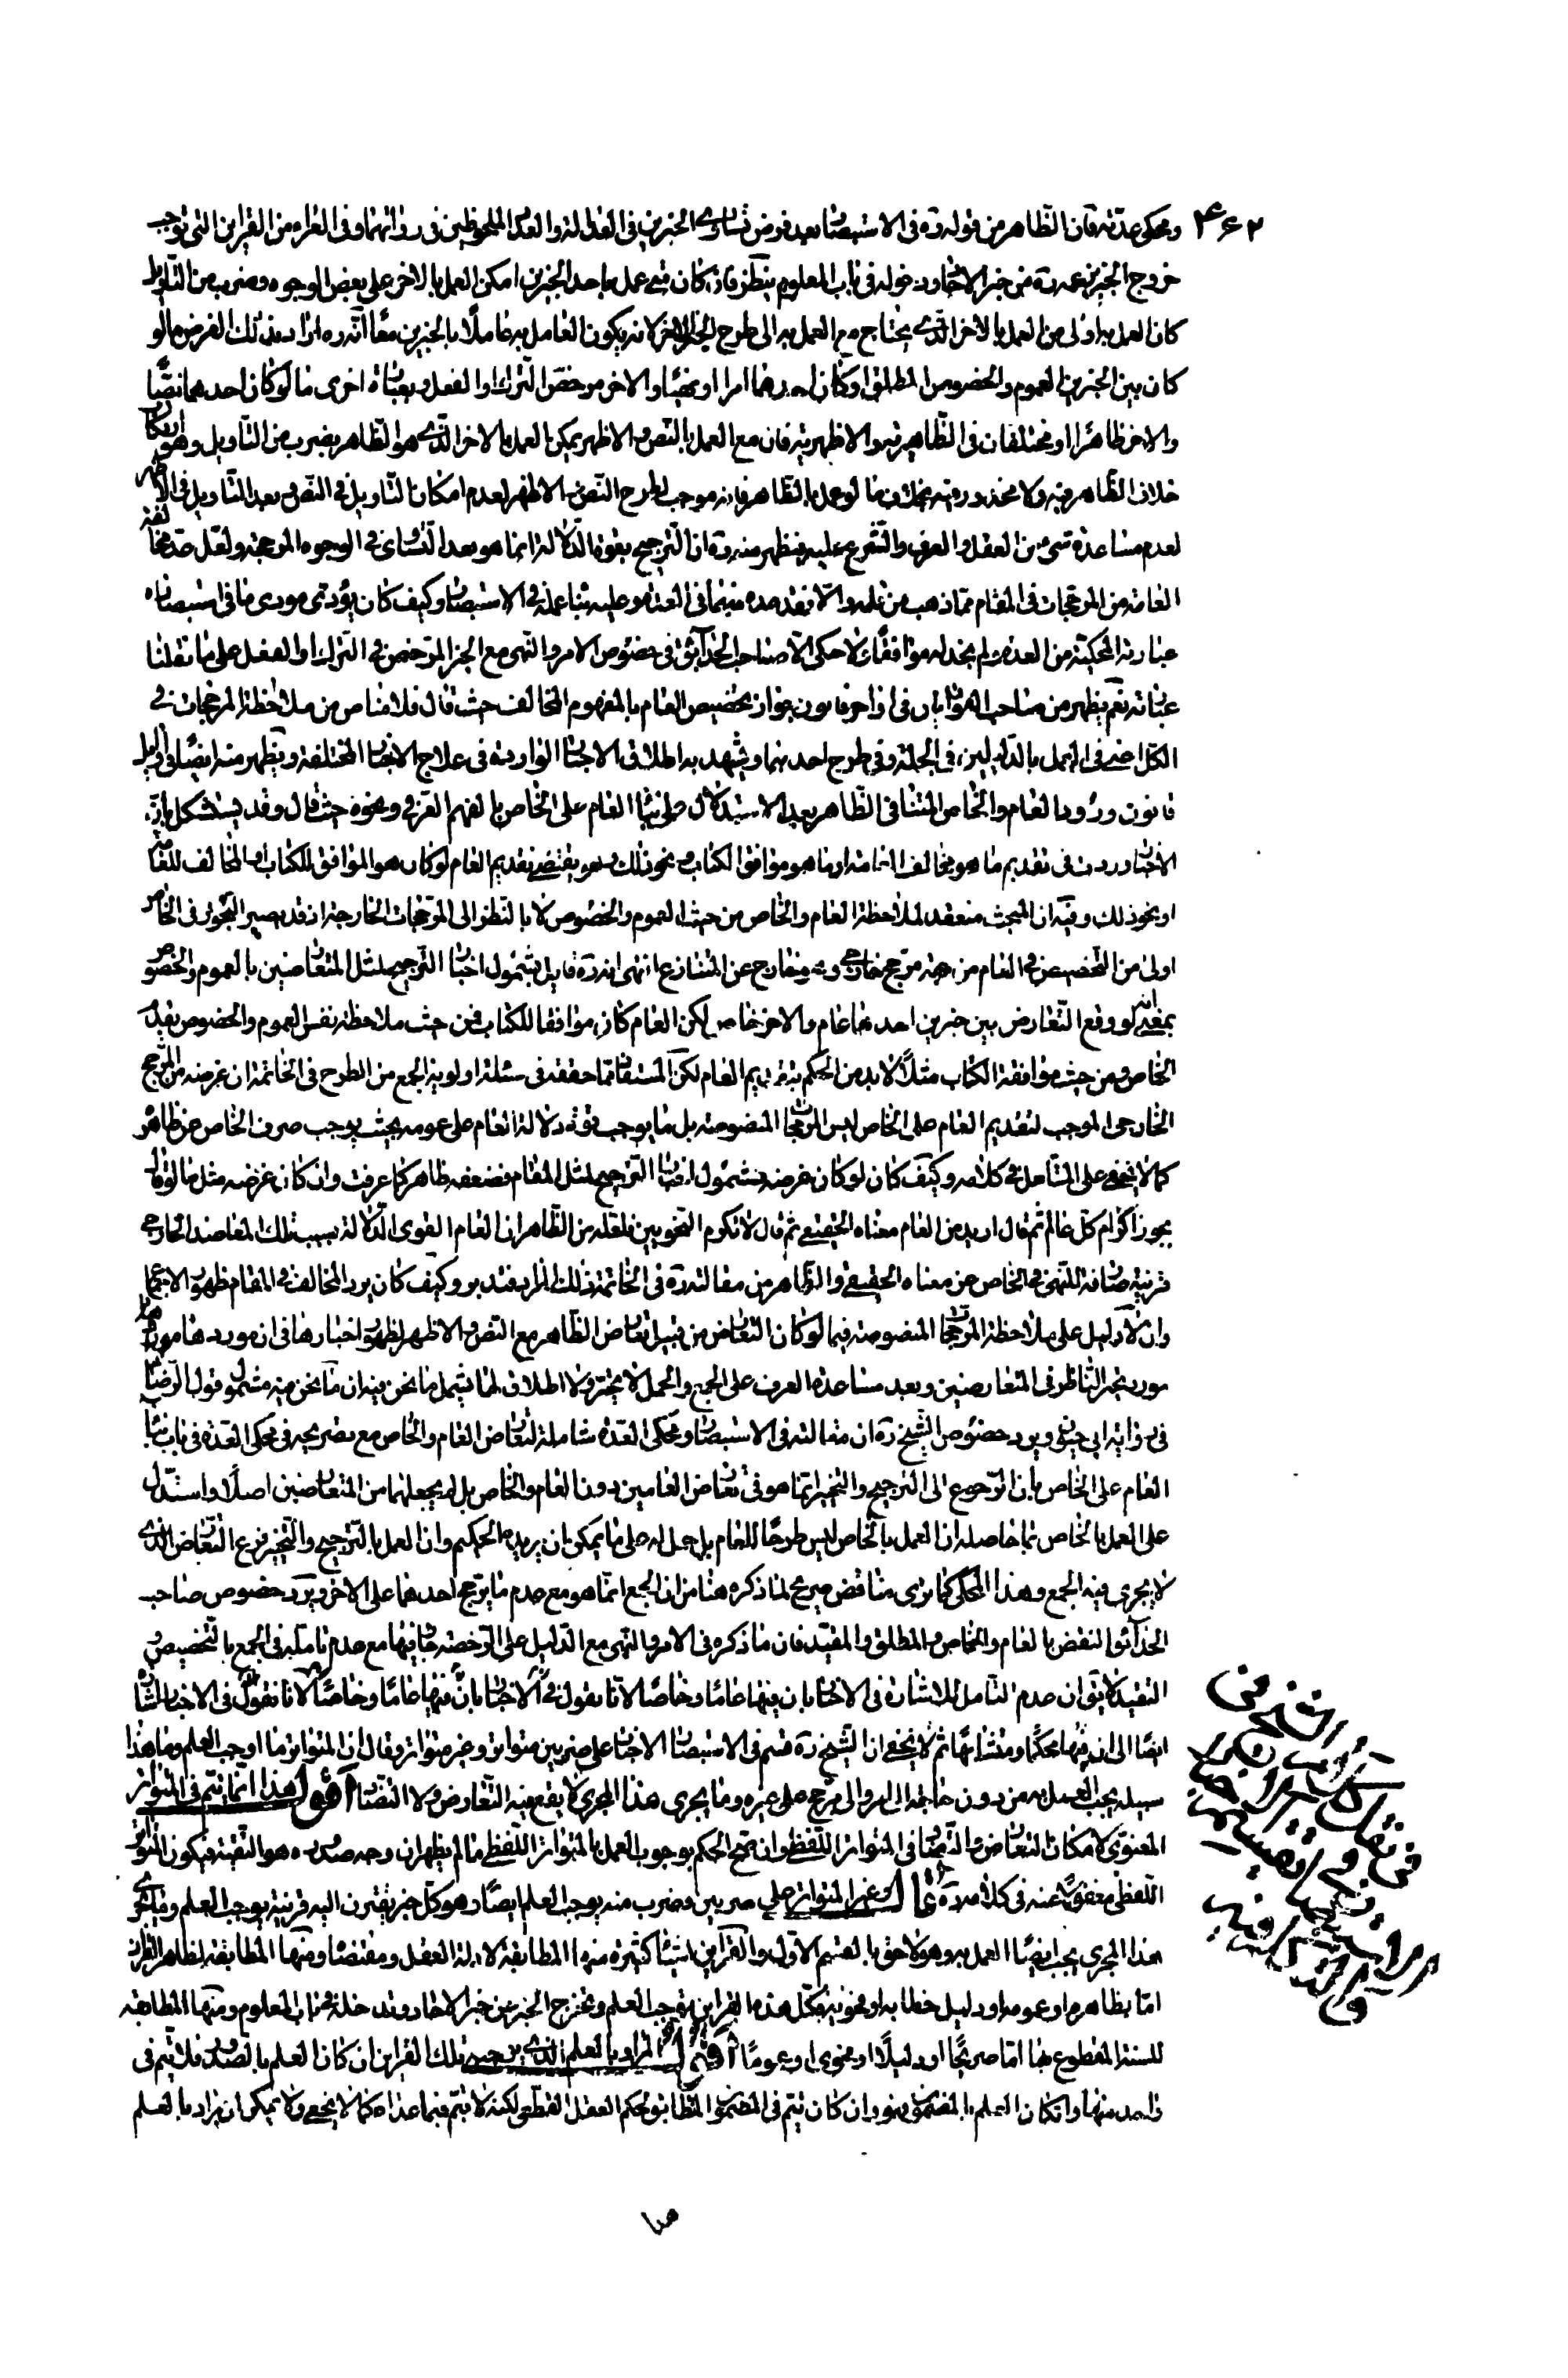 ۴۶۲
ومحكى عدّته فان الظاهر من قوله ره فى الاستبصار بعد فرض تساوى الخبرين فى العدالة والعدد الملحوظين فى رواتهما وفى العراء من القراين التى توجب
خروج الخبر عنده من خبر الاحاد ودخوله فى باب المعلوم ينظر فان كان متى عمل باحد الخبرين امكن العمل بالاخر على بعض الوجوه وضرب من التاويل
كان العمل به اولى من العمل بالاخر الذى يحتاج مع العمل به الى طرح الخبر الاخر لانه يكون العامل به عاملا بالخبرين معا انه ره اراد بذلك الفرض ما لو
كان بين الخبرين العموم والخصوص المطلق او كان احدهما امرا او نهيا والاخر مرخصا للترك او الفعل وبعبارة اخرى ما لو كان احدهما نصا
والاخر ظاهرا او مختلفان فى الظاهرية والاظهرية فان مع العمل بالنص والاظهر يمكن العمل بالاخر الذى هو الظاهر بضرب من التاويل وهو ارتكاب
خلاف الظاهر فيه ولا محذور فيه بخلاف ما لو عمل بالظاهر فانه موجب لطرح النص والاظهر لعدم امكان التاويل فى النص وبعد التاويل فى الاظهر
لعدم مساعدة شىء من العقل والعرف والشرع عليه فيظهر منه ره ان الترجيح بقوة الدلالة انما هو بعد التساوى فى الوجوه المرجحة ولعل عد مخالفة
العامة من المرجحات فى المقام مما ذهب من قلمه والا فقد عده منهما فى العدة وعليه بناء عمله فى الاستبصار وكيف كان يؤدى مودى ما فى استبصاره
عبارته المحكية من العدة ولم نجد له موافقا كما حكى الا صاحب الحدائق فى خصوص الامر والنهى مع الخبر المرخص فى الترك او الفعل على ما نقلنا
عبارته نعم يظهر من صاحب القوانين فى اواخر قانون جواز تخصيص العام بالمفهوم المخالف حيث قال فلا مناص من ملاحظة المرجحات فى
الكل اعنى فى العمل بالدليلين فى الجملة وفى طرح احدهما ويشهد به اطلاق الاخبار الواردة فى علاج الاخبار المختلفة ويظهر منه ايضا فى اوايل
قانون ورود العام والخاص المتنافى الظاهر بعد الاستدلال على بناء العام على الخاص بالفهم العرفى ونحوه حيث قال وقد يستشكل بان
الاخبار وردت فى تقديم ما هو مخالف العامة او ما هو موافق الكتاب ونحو ذلك وهو يقتضى تقديم العام لو كان هو الموافق للكتاب او المخالف للعامة
او نحو ذلك وفيه ان المبحث منعقد لملاحظة العام والخاص من حيث العموم والخصوص لا بالنظر الى المرجحات الخارجة اذ قد يصير التجوز فى الخاص
اولى من التخصيص فى العام من جهة مرجح خارجى وهو خارج عن المتنازع انتهى انه ره قايل بشمول اخبار الترجيح لمثل المتعارضين بالعموم والخصوص
بمعنى انه لو وقع التعارض بين خبرين احدهما عام والاخر خاص لكن العام كان موافقا للكتاب فمن حيث ملاحظة نفس العموم والخصوص يقدم
الخاص ومن حيث موافقة الكتاب مثلا لا بد من الحكم بتقديم العام لكن المستفاد مما حققه فى مسئلة اولوية الجمع من الطرح فى الخاتمة ان غرضه من المرجح
الخارجى الموجب لتقديم العام على الخاص ليس المرجحات المنصوصة بل ما يوجب قوة دلالة العام على عمومه بحيث يوجب صرف الخاص عن ظاهره
كما لا يخفى على المتامل فى كلامه وكيف كان لو كان غرضه شمول اخبار الترجيح لمثل المقام فضعفه ظاهر كما عرفت وان كان غرضه مثل ما لو قال
يجوز اكرام كل عالم ثم قال اريد من العام معناه الحقيقى ثم قال لا تكرم النحويين فلعله من الظاهر ان العام القوى الدلالة بسبب تلك المعاضد الخارجى
قرينة صارفة للنهى فى الخاص عن معناه الحقيقى والظاهر من مقالته ره فى الخاتمة ذلك المراد فتدبر وكيف كان يرد المخالف فى المقام ظهور الاجماع
وان لا دليل على ملاحظة المرجحات المنصوصة فيما لو كان التعارض من قبيل تعارض الظاهر مع النص والاظهر لظهور اخبارها فى ان موردها هو ما
مورد تحير الناظر فى المتعارضين وبعد مساعدة العرف على الجمع والحمل لا يتحير ولا اطلاق لها يشمل ما نحن فيه ان ما نحن فيه مشمول قول الرضا
فى رواية ابى حيون ويرد خصوص الشيخ ره ان مقالته فى الاستبصار ومحكى العدة شاملة لتعارض العام والخاص مع تصريحه فى محكى العدة فى باب بناء
العام على الخاص بان الرجوع الى الترجيح والتخيير انما هو فى تعارض العامين دون العام والخاص بل لم يجعلهما من المتعارضين اصلا واستدل
على العمل بالخاص بما حاصله ان العمل بالخاص ليس طرحا للعام بل حمل له على ما يمكن ان يريده الحكيم وان العمل بالترجيح والتخيير فرع التعارض الذى
لا يجرى فيه الجمع وهذا المحكى كما ترى مناقض صريح لما ذكره هنا من ان الجمع انما هو مع عدم ما يرجح احدهما على الاخر ويرد خصوص صاحب
الحدائق النقض بالعام والخاص والمطلق والمقيد فان ما ذكره فى الامر والنهى مع الدليل على الرخصة جار فيها مع عدم تامله فى الجمع بالتخصيص و
التقييد لا يق ان عدم التامل للاشارة فى الاخبار بان فيها عاما وخاصا لانا نقول فى الاخبار اشارة
ايضا الى ان فيها محكما ومتشابها ثم لا يخفى ان الشيخ ره قسم فى الاستبصار الاخبار على ضربين متواتر وغير متواتر وقال ان المتواتر ما اوجب العلم وما هذا
سبيله يجب العمل به من دون حاجة الى امر والى مرجح على غيره وما يجرى هذا المجرى لا يقع فيه التعارض ولا التضاد اقول هذا انما يتم فى المتواتر
المعنوى لامكان التعارض والتضاد فى المتواتر اللفظى وان صح الحكم بوجوب العمل بالمتواتر اللفظى ما لم يظهر ان وجه صدوره هو التقية فيكون المتواتر
اللفظى مغفولا عنه فى كلامه ره قال وغير المتواتر على ضربين فضرب منه يوجب العلم ايضا وهو كل خبر يقترن اليه قرينة يوجب العلم وما يجرى
هذا المجرى يجب ايضا العمل به وهو لاحق بالقسم الاول والقراين اشياء كثيرة منها المطابقة لادلة العقل ومقتضاه ومنها المطابقة لظاهر القران
اما بظاهره او عمومه او دليل خطابه او فحواه فكل هذه القراين توجب العلم وتخرج الخبر عن خبر الاحاد وتدخله فى باب المعلوم ومنها المطابقة
للسنة المقطوع بها اما صريحا او دليلا او فحوى او عموما اقول المراد بالعلم الذى يوجبه تلك القراين ان كان العلم بالصدور فلا يتم فى
واحد منها وان كان العلم بالمضمون فهو وان كان يتم فى المضمون المطابق لحكم العقل القطعى لكنه لا يتم فيما عداه كما لا يخفى ولا يمكن ان يراد بالعلم